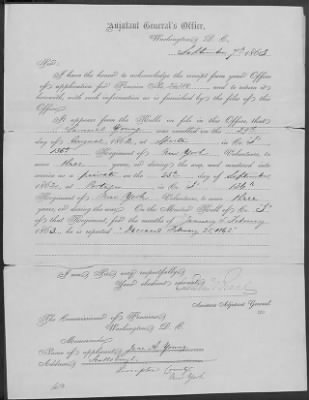 Adjutant General's Office,
Washington, D. C.
7th 1863
Sir:
I have the honor to acknowledge the receipt from your Office
of application for Pension No. and to return it
herewith, with such information as is furnished by the files of this
Office.
It appears from the Rolls on file in this Office, that
Samuel Young was enrolled on the
day of August, 1862, at in Co. I
136th Regiment of New York Volunteers, to
serve three years, or during the war, and mustered into
service as a private on the 25th day of September
1862, at Portage in Co. I 136th
Regiment of New York Volunteers, to serve three
years, or during the war. On the Muster Roll of Co. I
of that Regiment, for the months of January & February
1863, he is reported "Deceased February
I am, Sir, very respectfully,
Your obedient servant,
Assistant Adjutant General.
The Commissioner of Pensions
Washington, D. C.
Memoranda
Name of applicant, Jane A. Young
Address,
Livingston County
New York